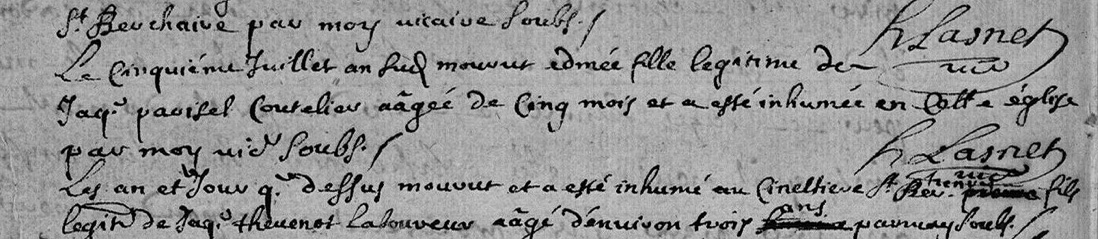 St Berchaire par moy vicaire soubs. /
h Lasnet
vic
Le Cinquiéme Juillet an susd mourut edmée fille legitime de
Jaq. parisel Coutelier aâgée de Cinq mois et a esté inhumée en Cette église
par moy vic. soubs. /
h Lasnet
vic
Les an et Jour q. dessus mourut et a esté inhumé au Cimeltiere St Ber. fils
legit. de Jaq. thevenot Laboureur aâgé d'environ trois ans par moy soubs. /